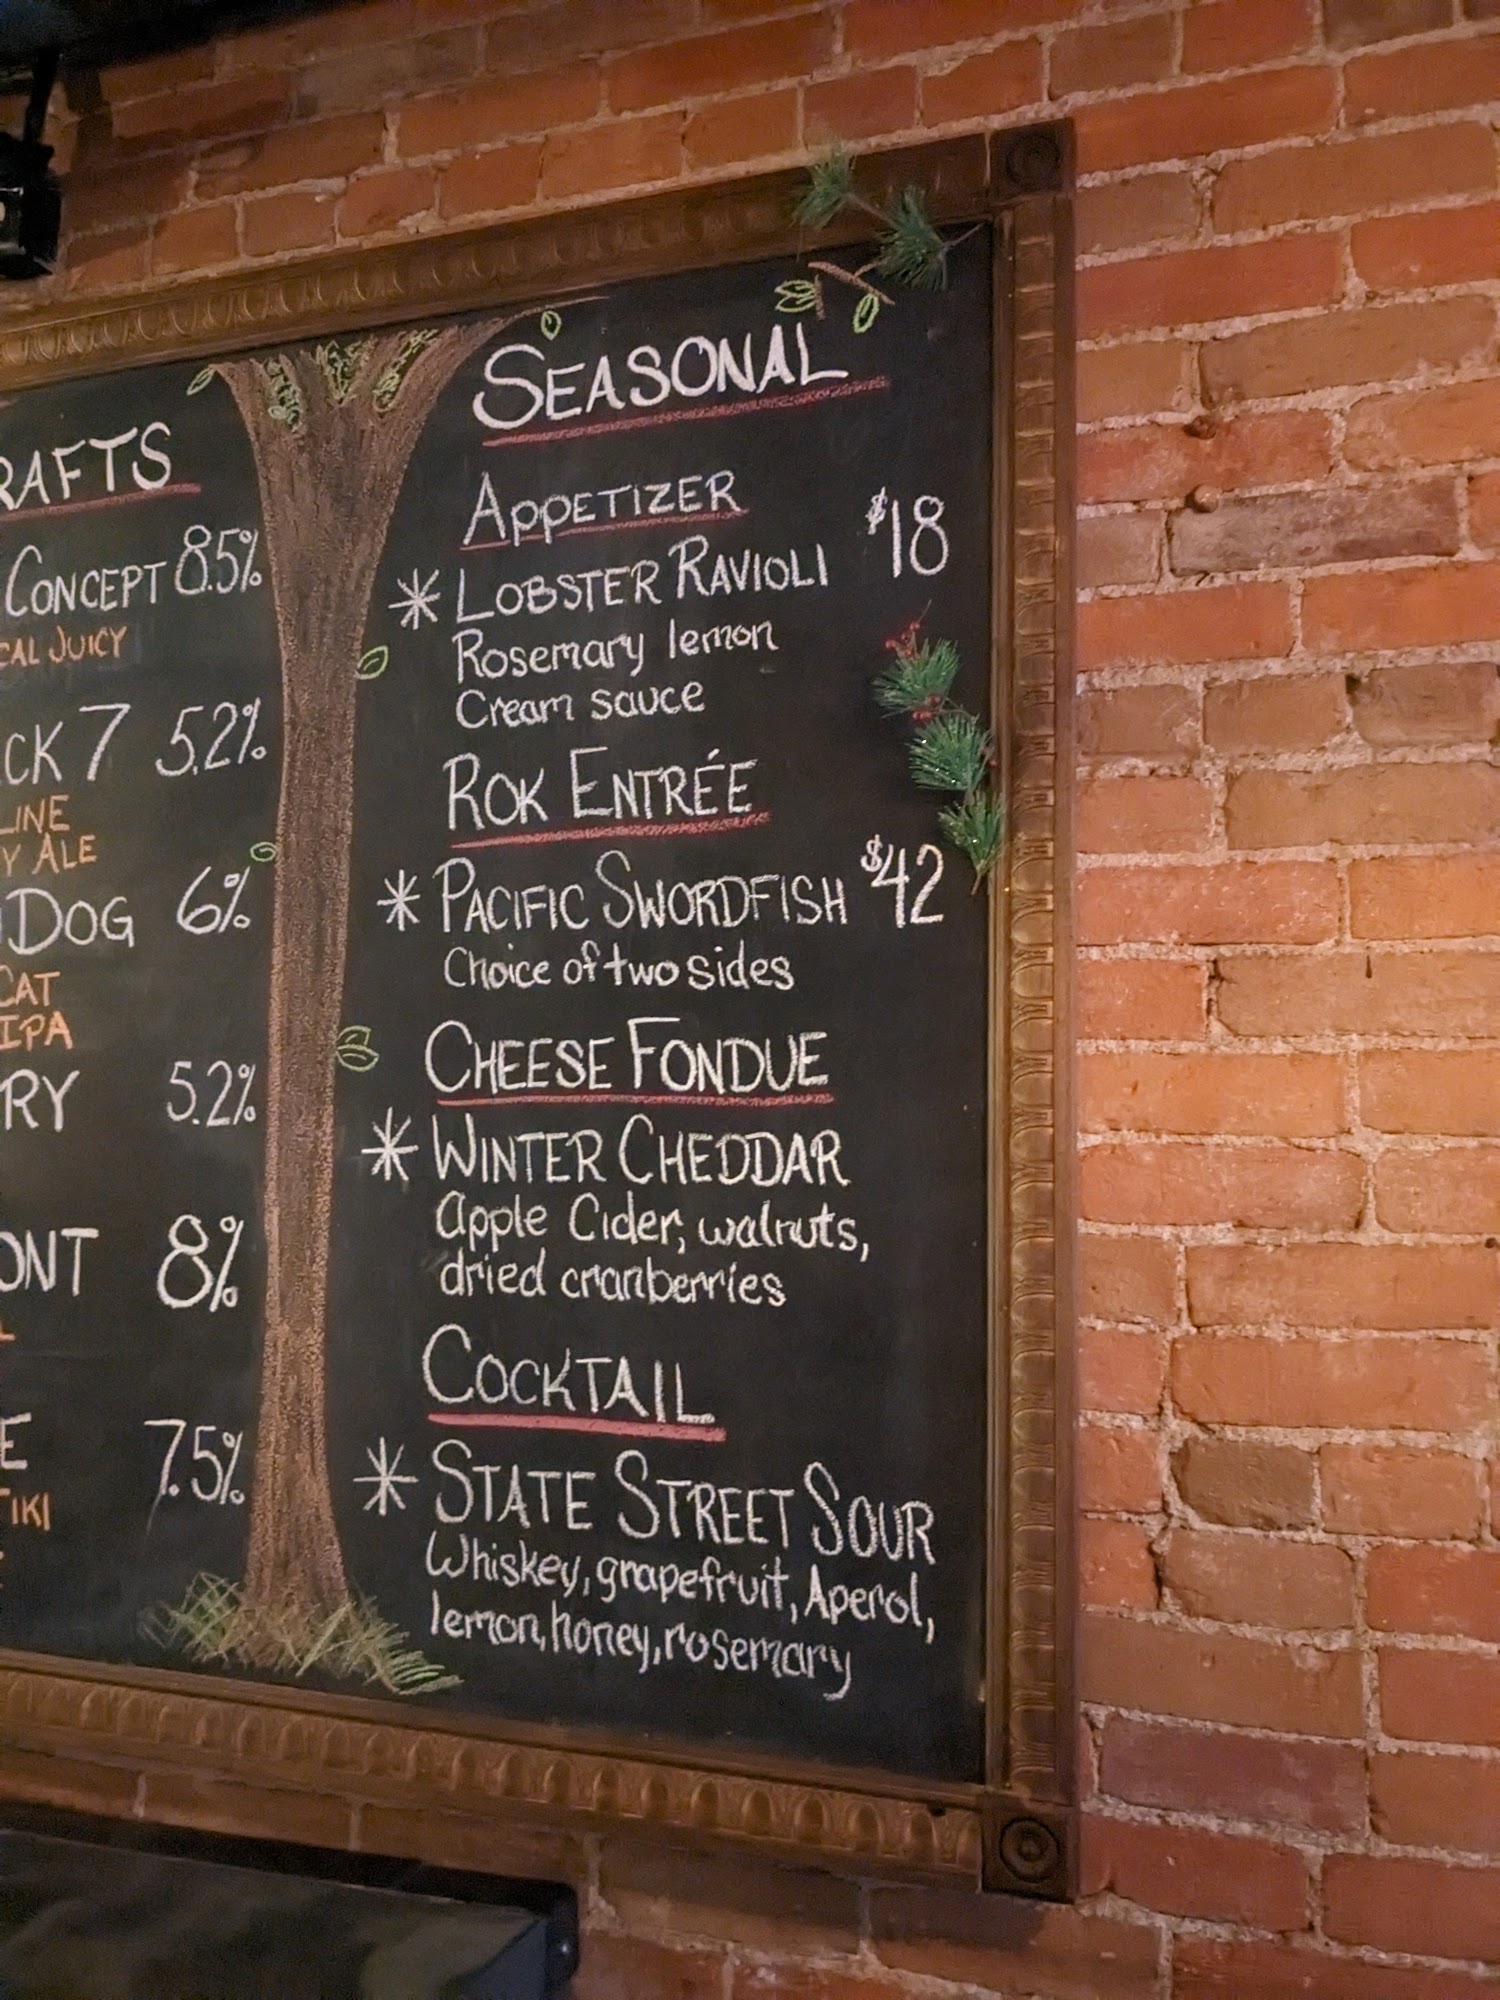 RAFTS
CONCEPT 8.5%
CAL JUICY
CK 7 5.2%
LINE
Y ALE
DOG 6%
CAT
IPA
RY 5.2%
ONT 8%
L
E 7.5%
TIKI
SEASONAL
APPETIZER
* LOBSTER RAVIOLI $18
Rosemary lemon
Cream sauce
ROK ENTRÉE
* PACIFIC SWORDFISH $42
Choice of two sides
CHEESE FONDUE
* WINTER CHEDDAR
Apple Cider, walnuts,
dried cranberries
COCKTAIL
* STATE STREET SOUR
Whiskey, grapefruit, Aperol,
lemon, honey, rosemary